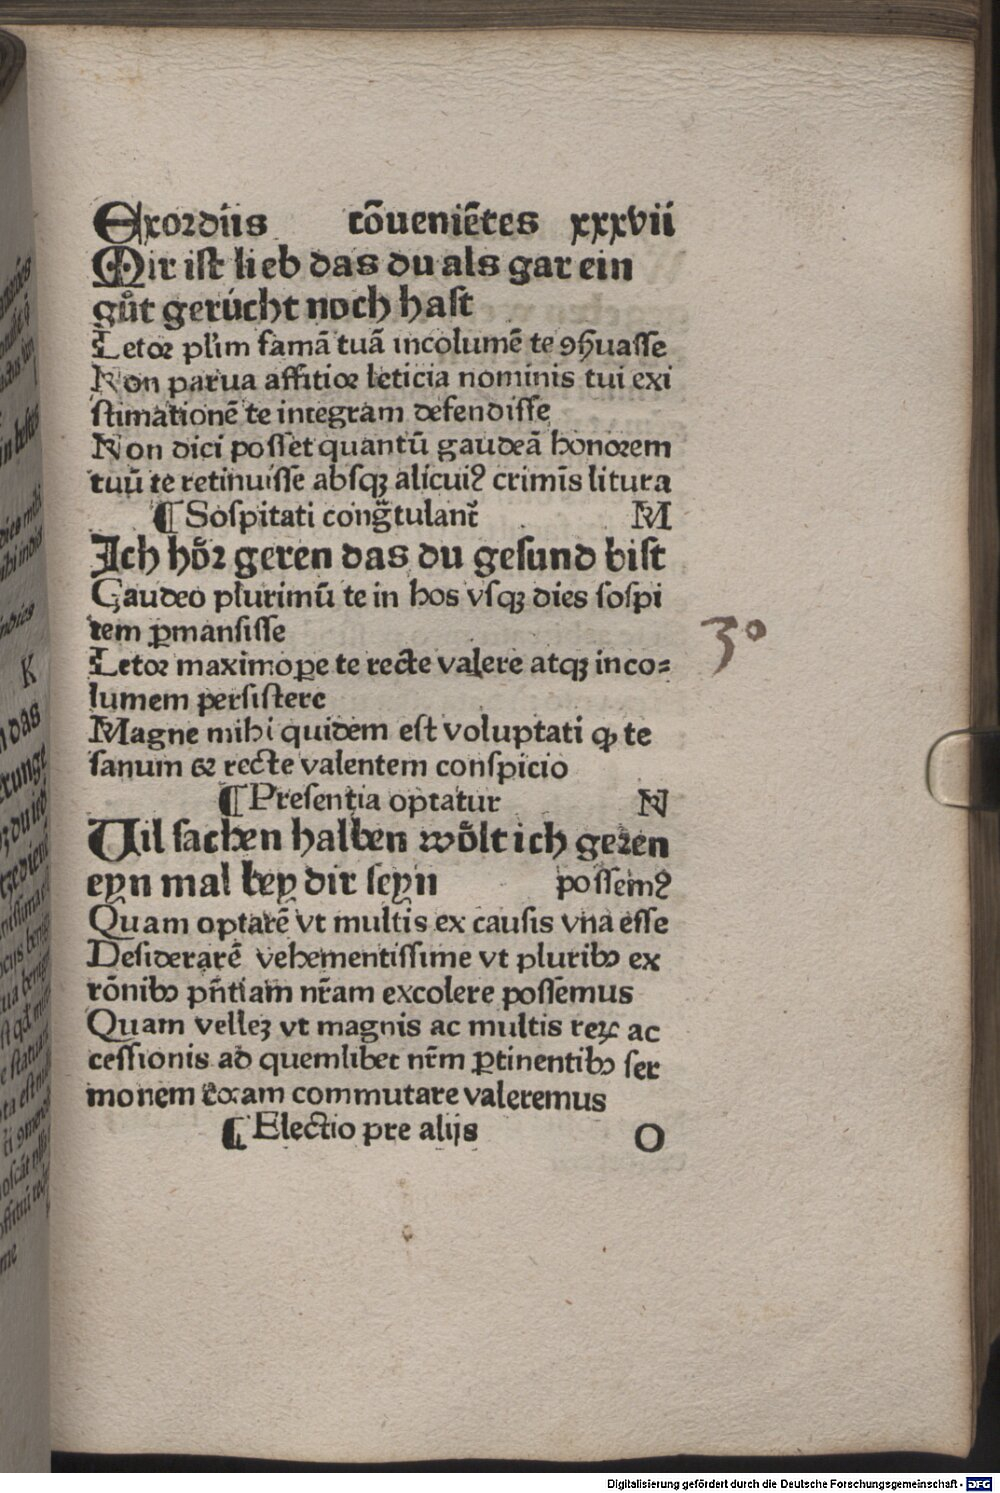 Exordiis cōueniētes xxxvii
Mir ist lieb das du als gar ein
gůt gerúcht noch hast
Letor pl'im famā tuā incolumē te ꝯẜuasse
Non parua affitior leticia nominis tui exi
stimationē te integram defendisse
Non dici posset quantū gaudeā honorem
tuū te retinuisse absqꝫ alicuiꝰ crimīs litura
¶ Sospitati congr̄tulant᷑ M
Ich hǒr geren das du gesund bist
Gaudeo plurimū te in hos vsqꝫ dies sospi
tem ꝑmansisse
Letor maximoꝑe te recte valere atqꝫ inco⸗
lumem persistere
Magne mihi quidem est voluptati ꝙ te
sanum ⁊ recte valentem conspicio
¶ Presentia optatur N
Uil sachen halben wǒlt ich geren
eyn mal bey dir seyn possemꝰ
Quam optarē vt multis ex causis vna esse
Desiderarē vehementissime vt pluribꝰ ex
rōnibꝰ pn̄tiam nr̄am excolere possemus
Quam velleꝫ vt magnis ac multis reꝝ ac
cessionis ad quemlibet nr̄m ꝑtinentibꝰ ser
monem coram commutare valeremus
¶ Electio pre alijs O
30
Digitalisierung gefördert durch die Deutsche Forschungsgemeinschaft - DFG